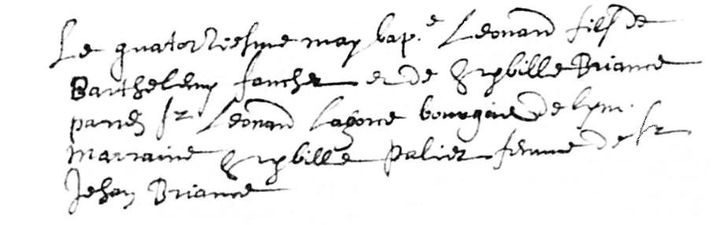 Le quatorziesme may bap.e Leonard fils de
Barthelemy foucher et de Sybille Briance
parrein Sr Leonard bourgeois de lym.
Marraine Sybille Palier femme de Sr
Jehan Briance